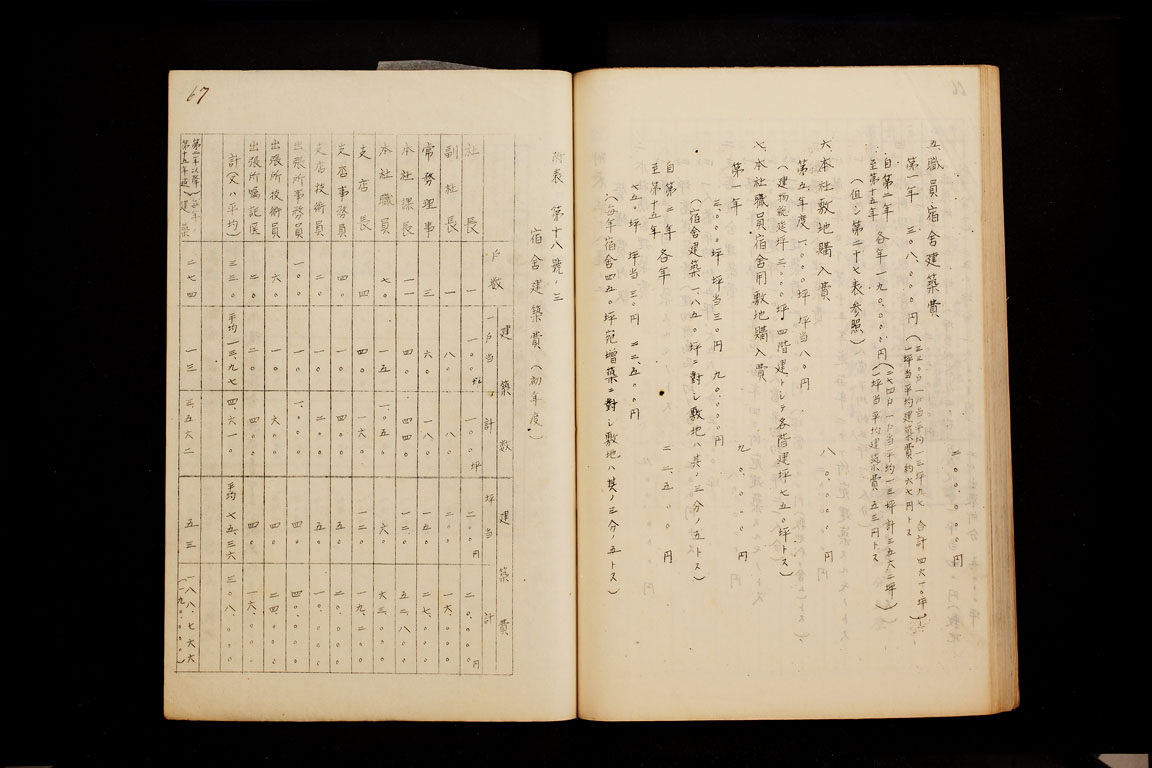 二〇〇、〇〇〇円
五、職員宿舎建築費
第一年 三〇八、〇〇〇円(三三〇戸一戸当平均一三坪九七 合計四六一〇坪)
一坪当平均建築費約六七円トス
自第二年 各年一九〇、〇〇〇円(二七四戸一戸当平均一三坪計三五六二坪)
至第十五年 一坪当平均建築費五三円トス
(但シ第二十七表参照)
六、本社敷地購入費 八〇、〇〇〇円
第五年度一、〇〇〇坪 坪当八〇円
(建物総建坪三〇〇〇坪 四階建トシテ各階建坪七五〇坪トス)
七、本社職員宿舎用敷地購入費
第一年 九〇、〇〇〇円
三、〇〇〇坪 坪当三〇円 九〇、〇〇〇円
(宿舎建築一、八五〇坪ニ対シ敷地ハ其ノ三分ノ五トス)
自第二年
至第十五年 各年 二二、五〇〇円
七五〇坪 坪当三〇円 二二、五〇〇円
(毎年宿舎四五〇坪宛増築ニ対シ敷地ハ其ノ三分ノ五トス)
67
附表 第十八號ノ三
宿舎建築費(初年度)
戸数 建築数 建築費
一戸当 計 坪当 計
社長 一 一〇〇坪 一〇〇坪 二〇〇円 二〇、〇〇〇円
副社長 一 八〇 八〇 二〇〇 一六、〇〇〇
常務理事 三 六〇 一八〇 一五〇 二七、〇〇〇
本社課長 一一 四〇 四四〇 一二〇 五二、八〇〇
本社職員 七〇 一五 一、〇五〇 六〇 六三、〇〇〇
支店長 四 四〇 一六〇 一二〇 一九、二〇〇
支店事務員 四〇 一〇 四〇〇 五〇 二〇、〇〇〇
支店技術員 二〇 一〇 二〇〇 五〇 一〇、〇〇〇
出張所事務員 一〇〇 一〇 一、〇〇〇 四〇 四〇、〇〇〇
出張所技術員 六〇 一〇 六〇〇 四〇 二四、〇〇〇
出張所嘱託医 二〇 二〇 四〇〇 四〇 一六、〇〇〇
計(又ハ平均) 三三〇 平均一三、九七 四、六一〇 平均七五、三六 三〇八、〇〇〇
第二年以降
第十五年迄 毎年建築 二七四 一三 三、五六二 五三 一八八、七六六
(一九〇、〇〇〇)